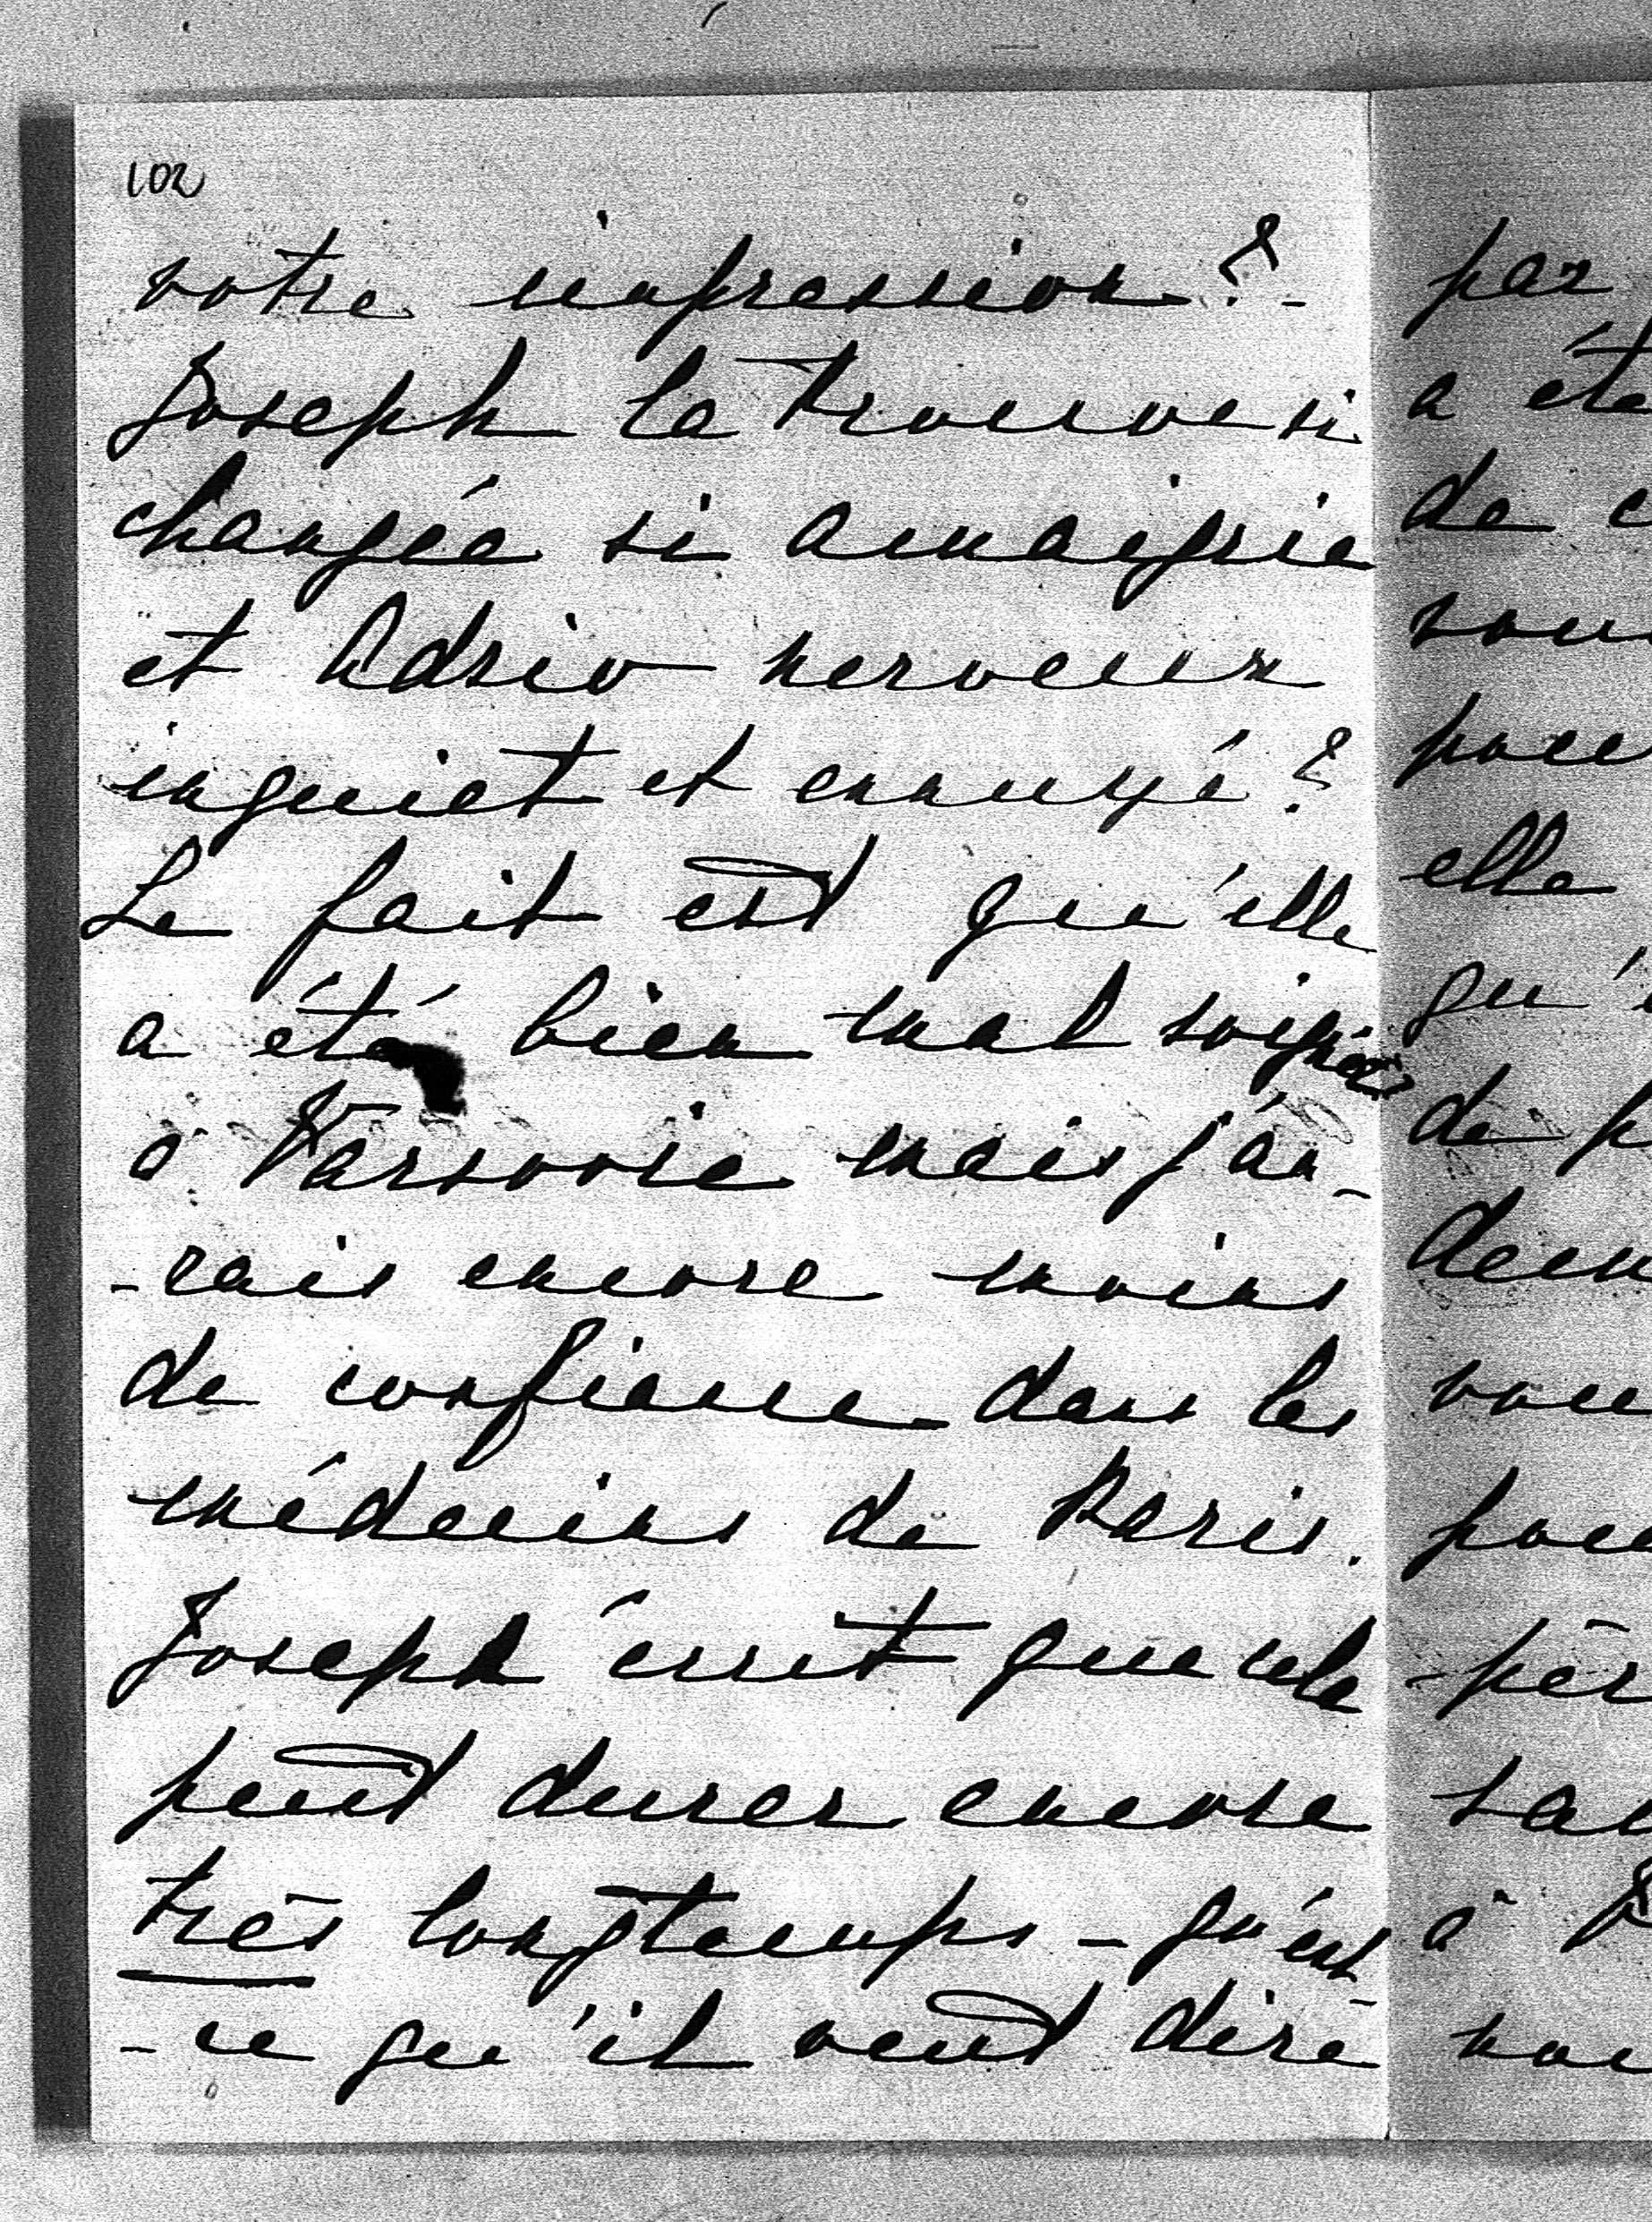 102
votre impression? -
Joseph la trouve si
changée si amaigrie
et Adzio nerveux
inquiet et ennuyé?
Le fait est qu'elle
a été bien mal soignée
à Varsovie mais j'au-
-rais encore moins
de confiance dans les
médecins de Paris.
Joseph écrit que cela
peut durer encore
très longtemps - qu'est
-ce qu'il veut dire
par
a été
de
pou
elle
qu'
de p
vou
pou
-pér
à